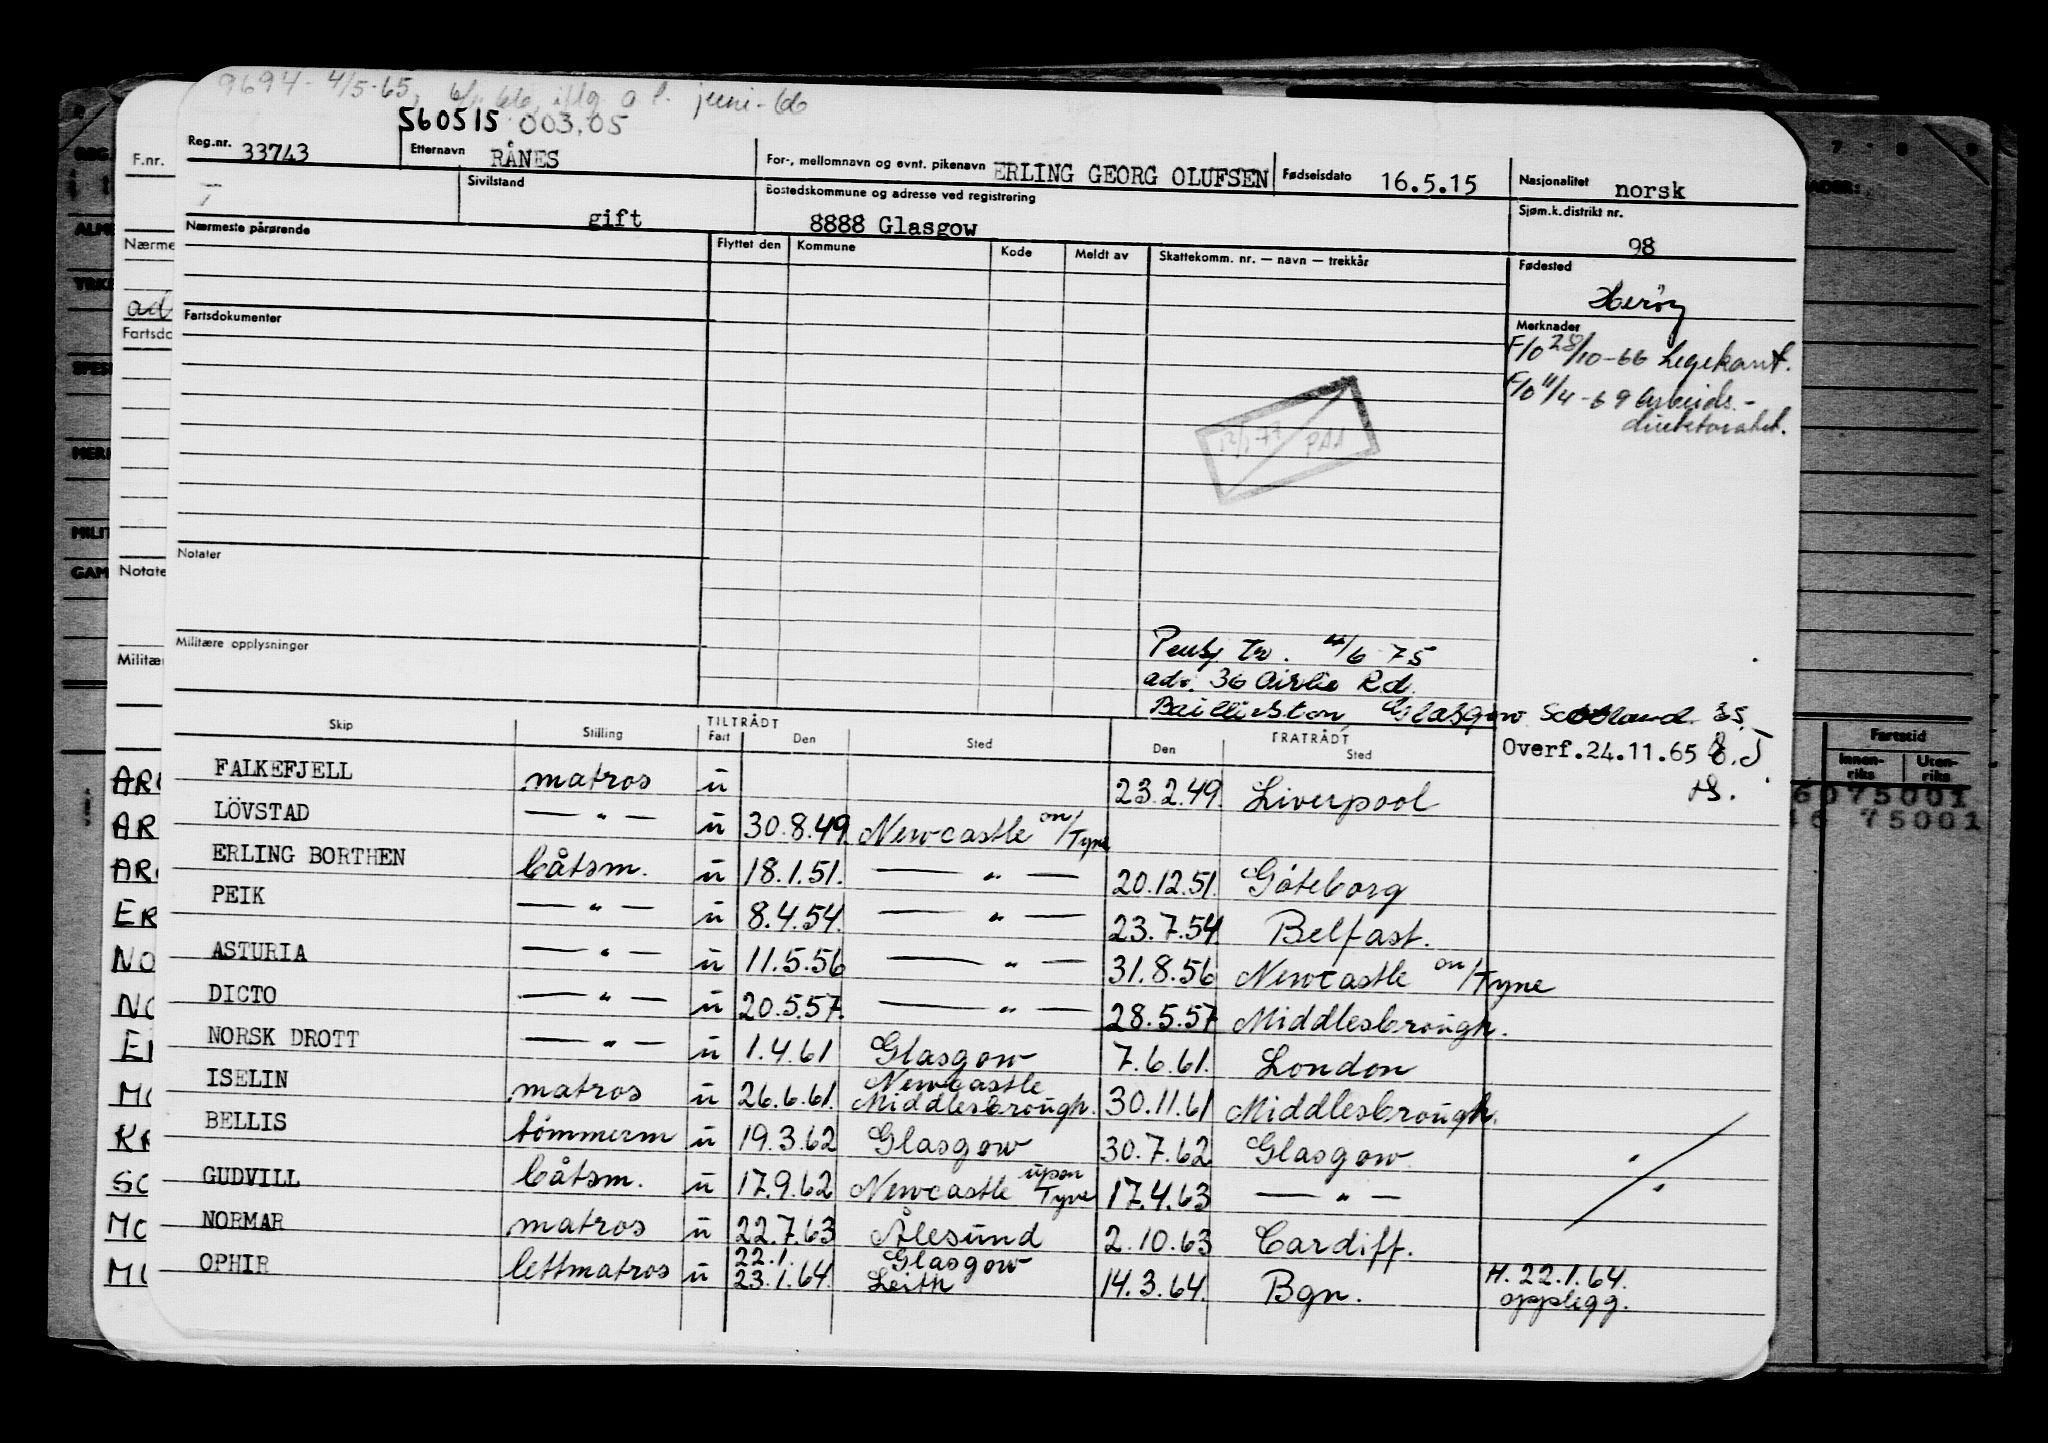 9694 - 4/5-65, juni-66
560515 003.05
Reg.nr. 33743 Etternavn RÅNES For-, mellomnavn og evnt. pikenavn ERLING GEORG OLUFSEN Fødselsdato 16.5.15 Nasjonalitet norsk
F.nr.
Sivilstand gift Bostedskommune og adresse ved registrering 8888 Glasgow Sjøm.k.distrikt nr. 98
Nærmeste pårørende Flyttet den Kommune Kode Meldt av Skattekomm. nr. — navn — trekkår Fødested Herøy
Fartsdokumenter
Merknader
F/O 28/10-66 Legekont.
F/O 11/4-69 Arbeids-
direktoratet.
Notater
Militære opplysninger
Pensj Tr. 4/6 75
adr. 36 Airlie Rd.
Baillieston, Glasgow Scotland.
Overf.24.11.65
Skip Stilling TILTRÅDT Fart Den Sted FRATRÅDT Den Sted
FALKEFJELL matros u 23.2.49. Liverpool
LÖVSTAD — " — u 30.8.49. Newcastle on/Tyne
ERLING BORTHEN båtsm. u 18.1.51. — " — 20.12.51. Göteborg
PEIK — " — u 8.4.54. — " — 23.7.54. Belfast.
ASTURIA — " — u 11.5.56 — " — 31.8.56 Newcastle on/Tyne
DICTO — " — u 20.5.57. — " — 28.5.57 Middlesbrough.
NORSK DROTT — " — u 1.4.61 Glasgow 7.6.61. London
ISELIN matros u 26.6.61. Newcastle Middlesbrough. 30.11.61 Middlesbrough.
BELLIS tömmerm u 19.3.62 Glasgow 30.7.62 Glasgow "
GUDVILL båtsm. u 17.9.62 Newcastle upon Tyne 17.4.63 — " — "
NORMAR matros u 22.7.63 Ålesund 2.10.63 Cardiff.
OPHIR lettmatros u 22.1. Glasgow 23.1.64. Leith 14.3.64. Bgn. H. 22.1.64. opplegg.
Fartstid
Innen-riks Uten-riks
6075001
46 75001